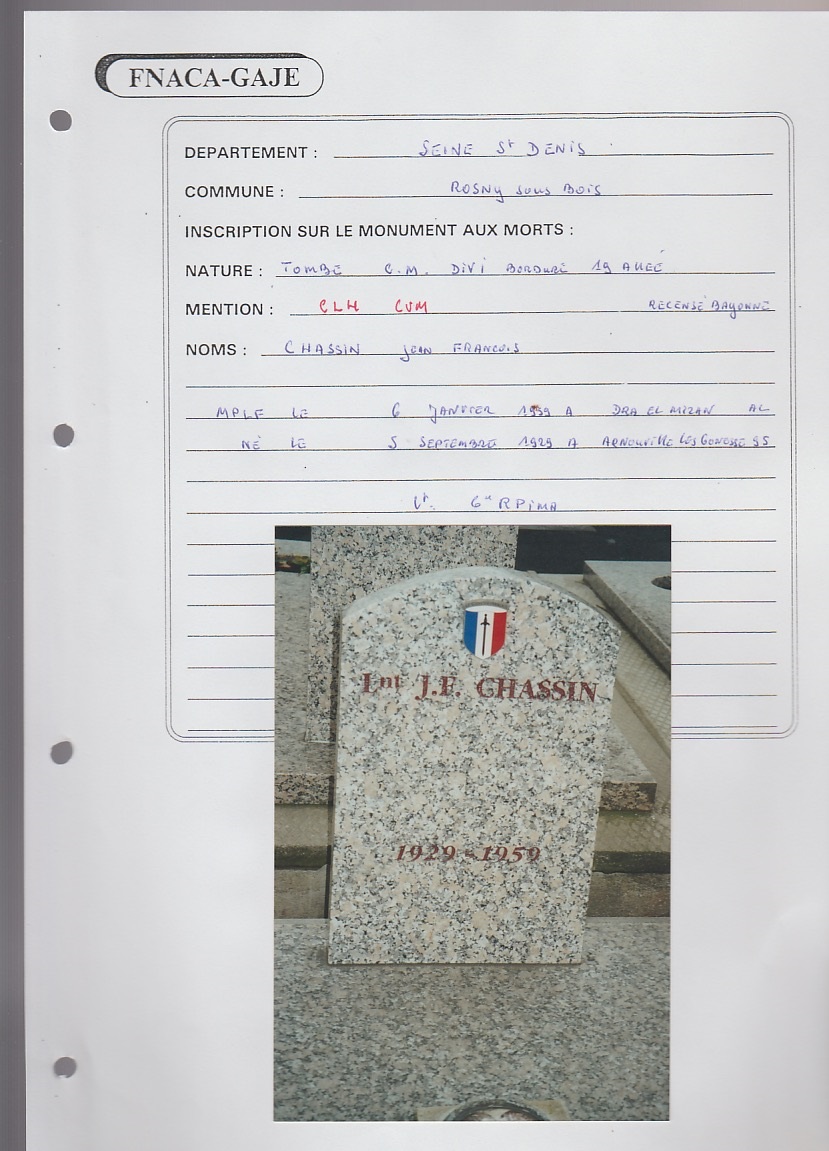 FNACA-GAJE
DEPARTEMENT : SEINE St DENIS
COMMUNE : ROSNY sous BOIS
INSCRIPTION SUR LE MONUMENT AUX MORTS :
NATURE : TOMBE C.M. DIVI BORDURE 19 ALLÉE
MENTION : CLH CVM RECENSÉ BAYONNE
NOMS : CHASSIN JEAN FRANCOIS
MPLF LE 6 JANVIER 1959 A DRA EL MIZAN AL
NÉ LE 5 SEPTEMBRE 1929 A ARNOUVILLE LES GONESSE 95
Lt. 6e RPIMA
Lnt J.F. CHASSIN
1929-1959